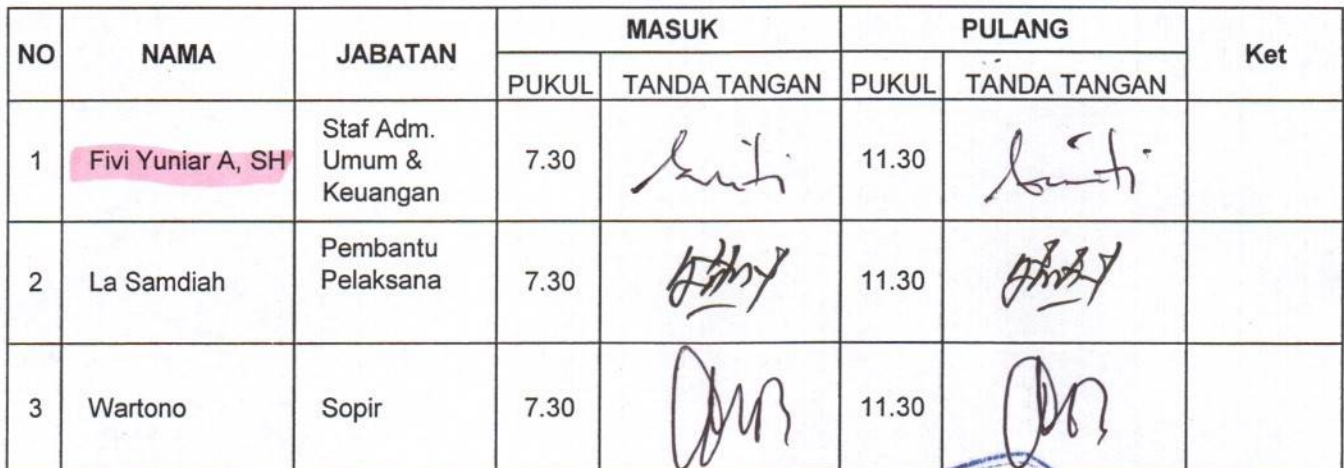 NO NAMA JABATAN MASUK PULANG Ket
PUKUL TANDA TANGAN PUKUL TANDA TANGAN
1 Fivi Yuniar A, SH Staf Adm. Umum & Keuangan 7.30 11.30
2 La Samdiah Pembantu Pelaksana 7.30 11.30
3 Wartono Sopir 7.30 11.30